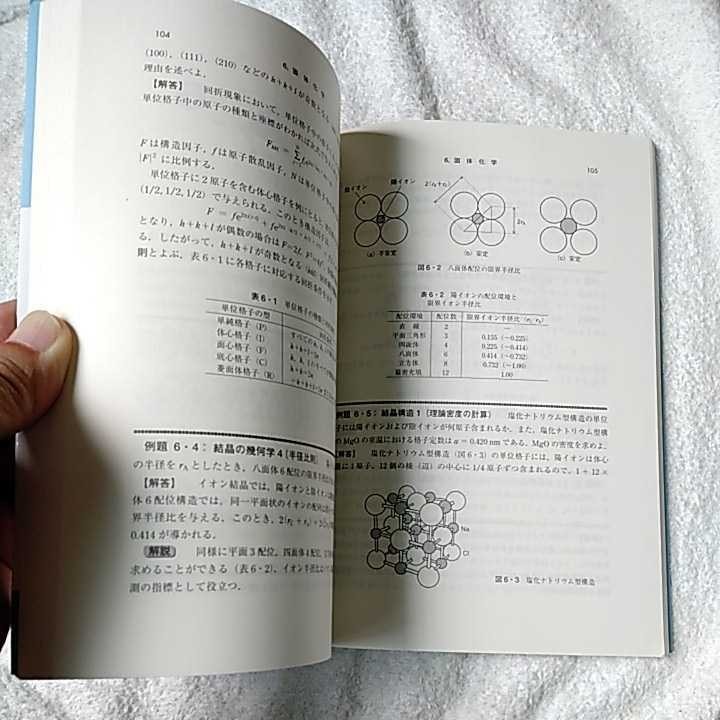 104
6. 固体化学
(100), (111), (210) などの h+k+l が奇数と
理由を述べよ.
【解答】 回折現象において, 単位格子中の
単位格子中の原子の種類と座標がわかれば
F は構造因子, f は原子散乱因子, N は単位格子
|F|² に比例する.
単位格子に 2 原子を含む体心格子を例にとると,
(1/2, 1/2, 1/2) で与えられる. このとき構造因子は,
となり, h+k+l が偶数の場合は F=2f,
る. したがって, h+k+l が奇数となる (hkl)
則とよぶ. 表6・1に各格子に対応する回折条件を
表6・1 単位格子の種類
単位格子の型
単純格子 (P)
体心格子 (I)
面心格子 (F)
底心格子 (C)
菱面体格子 (R)
例題 6・4: 結晶の幾何学 4 (半径比則)
の半径を rA としたとき, 八面体 6 配位
【解答】 イオン結晶では, 陽イオンと陰イオン
体 6 配位構造では, 同一平面状のイオンの配列
界半径比を与える. このとき, 2(rC + rA)
0.414 が導かれる.
解説 同様に平面 3 配位, 四面体 4 配位,
求めることができる (表6・2). イオン半径比
測の指標として役立つ.
6. 固体化学
105
陰イオン 陽イオン 2(rA+rC)
2rA
(a) 不安定 (b) 安定 (c) 安定
図6・2 八面体配位の限界半径比
表6・2 陽イオンの配位環境と
限界イオン半径比
配位環境 配位数 限界イオン半径比 (rC/rA)
直線 2 —
平面三角形 3 0.155 (~0.225)
四面体 4 0.225 (~0.414)
八面体 6 0.414 (~0.732)
立方体 8 0.732 (~1.00)
最密充填 12 1.00
例題 6・5: 結晶構造 1 (理論密度の計算) 塩化ナトリウム型構造の単位
子には陽イオンおよび陰イオンが何原子含まれるか. また, 塩化ナトリウム型構
の MgO の室温における格子定数は a = 0.420 nm である. MgO の密度を求めよ.
【解答】 塩化ナトリウム型構造 (図6・3) の単位格子には, 陽イオンは体心
に 1 原子, 12 個の稜 (辺) の中心に 1/4 原子ずつ含まれるので, 1 + 12 ×
Na
Cl
図6・3 塩化ナトリウム型構造